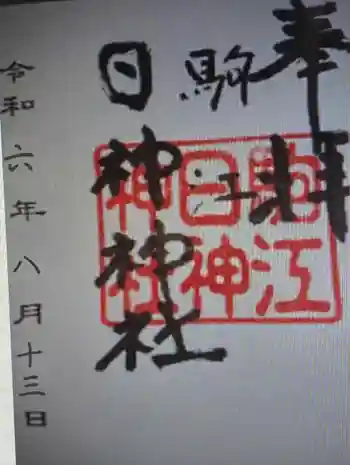 奉拝
駒江
日神神社
駒江
日神
神社
令和六年八月十三日